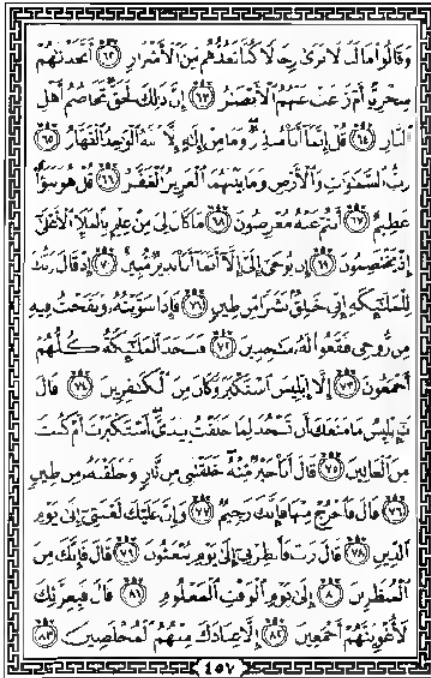 وَقَالُوا۟ مَا لَنَا لَا نَرَىٰ رِجَالًا كُنَّا نَعُدُّهُم مِّنَ ٱلْأَشْرَارِ ﴿٦٢﴾ أَتَّخَذْنَٰهُمْ
سِخْرِيًّا أَمْ زَاغَتْ عَنْهُمُ ٱلْأَبْصَٰرُ ﴿٦٣﴾ إِنَّ ذَٰلِكَ لَحَقٌّ تَخَاصُمُ أَهْلِ
ٱلنَّارِ ﴿٦٤﴾ قُلْ إِنَّمَآ أَنَا۠ مُنذِرٌ وَمَا مِنْ إِلَٰهٍ إِلَّا ٱللَّهُ ٱلْوَٰحِدُ ٱلْقَهَّارُ ﴿٦٥﴾
رَبُّ ٱلسَّمَٰوَٰتِ وَٱلْأَرْضِ وَمَا بَيْنَهُمَا ٱلْعَزِيزُ ٱلْغَفَّٰرُ ﴿٦٦﴾ قُلْ هُوَ نَبَؤٌا۟
عَظِيمٌ ﴿٦٧﴾ أَنتُمْ عَنْهُ مُعْرِضُونَ ﴿٦٨﴾ مَا كَانَ لِىَ مِنْ عِلْمٍۭ بِٱلْمَلَإِ ٱلْأَعْلَىٰٓ
إِذْ يَخْتَصِمُونَ ﴿٦٩﴾ إِن يُوحَىٰٓ إِلَىَّ إِلَّآ أَنَّمَآ أَنَا۠ نَذِيرٌ مُّبِينٌ ﴿٧٠﴾ إِذْ قَالَ رَبُّكَ
لِلْمَلَٰٓئِكَةِ إِنِّى خَٰلِقٌۢ بَشَرًا مِّن طِينٍ ﴿٧١﴾ فَإِذَا سَوَّيْتُهُۥ وَنَفَخْتُ فِيهِ
مِن رُّوحِى فَقَعُوا۟ لَهُۥ سَٰجِدِينَ ﴿٧٢﴾ فَسَجَدَ ٱلْمَلَٰٓئِكَةُ كُلُّهُمْ
أَجْمَعُونَ ﴿٧٣﴾ إِلَّآ إِبْلِيسَ ٱسْتَكْبَرَ وَكَانَ مِنَ ٱلْكَٰفِرِينَ ﴿٧٤﴾ قَالَ
يَٰٓإِبْلِيسُ مَا مَنَعَكَ أَن تَسْجُدَ لِمَا خَلَقْتُ بِيَدَىَّ أَسْتَكْبَرْتَ أَمْ كُنتَ
مِنَ ٱلْعَالِينَ ﴿٧٥﴾ قَالَ أَنَا۠ خَيْرٌ مِّنْهُ خَلَقْتَنِى مِن نَّارٍ وَخَلَقْتَهُۥ مِن طِينٍ
﴿٧٦﴾ قَالَ فَٱخْرُجْ مِنْهَا فَإِنَّكَ رَجِيمٌ ﴿٧٧﴾ وَإِنَّ عَلَيْكَ لَعْنَتِىٓ إِلَىٰ يَوْمِ
ٱلدِّينِ ﴿٧٨﴾ قَالَ رَبِّ فَأَنظِرْنِىٓ إِلَىٰ يَوْمِ يُبْعَثُونَ ﴿٧٩﴾ قَالَ فَإِنَّكَ مِنَ
ٱلْمُنظَرِينَ ﴿٨٠﴾ إِلَىٰ يَوْمِ ٱلْوَقْتِ ٱلْمَعْلُومِ ﴿٨١﴾ قَالَ فَبِعِزَّتِكَ
لَأُغْوِيَنَّهُمْ أَجْمَعِينَ ﴿٨٢﴾ إِلَّا عِبَادَكَ مِنْهُمُ ٱلْمُخْلَصِينَ ﴿٨٣﴾
٤٥٧